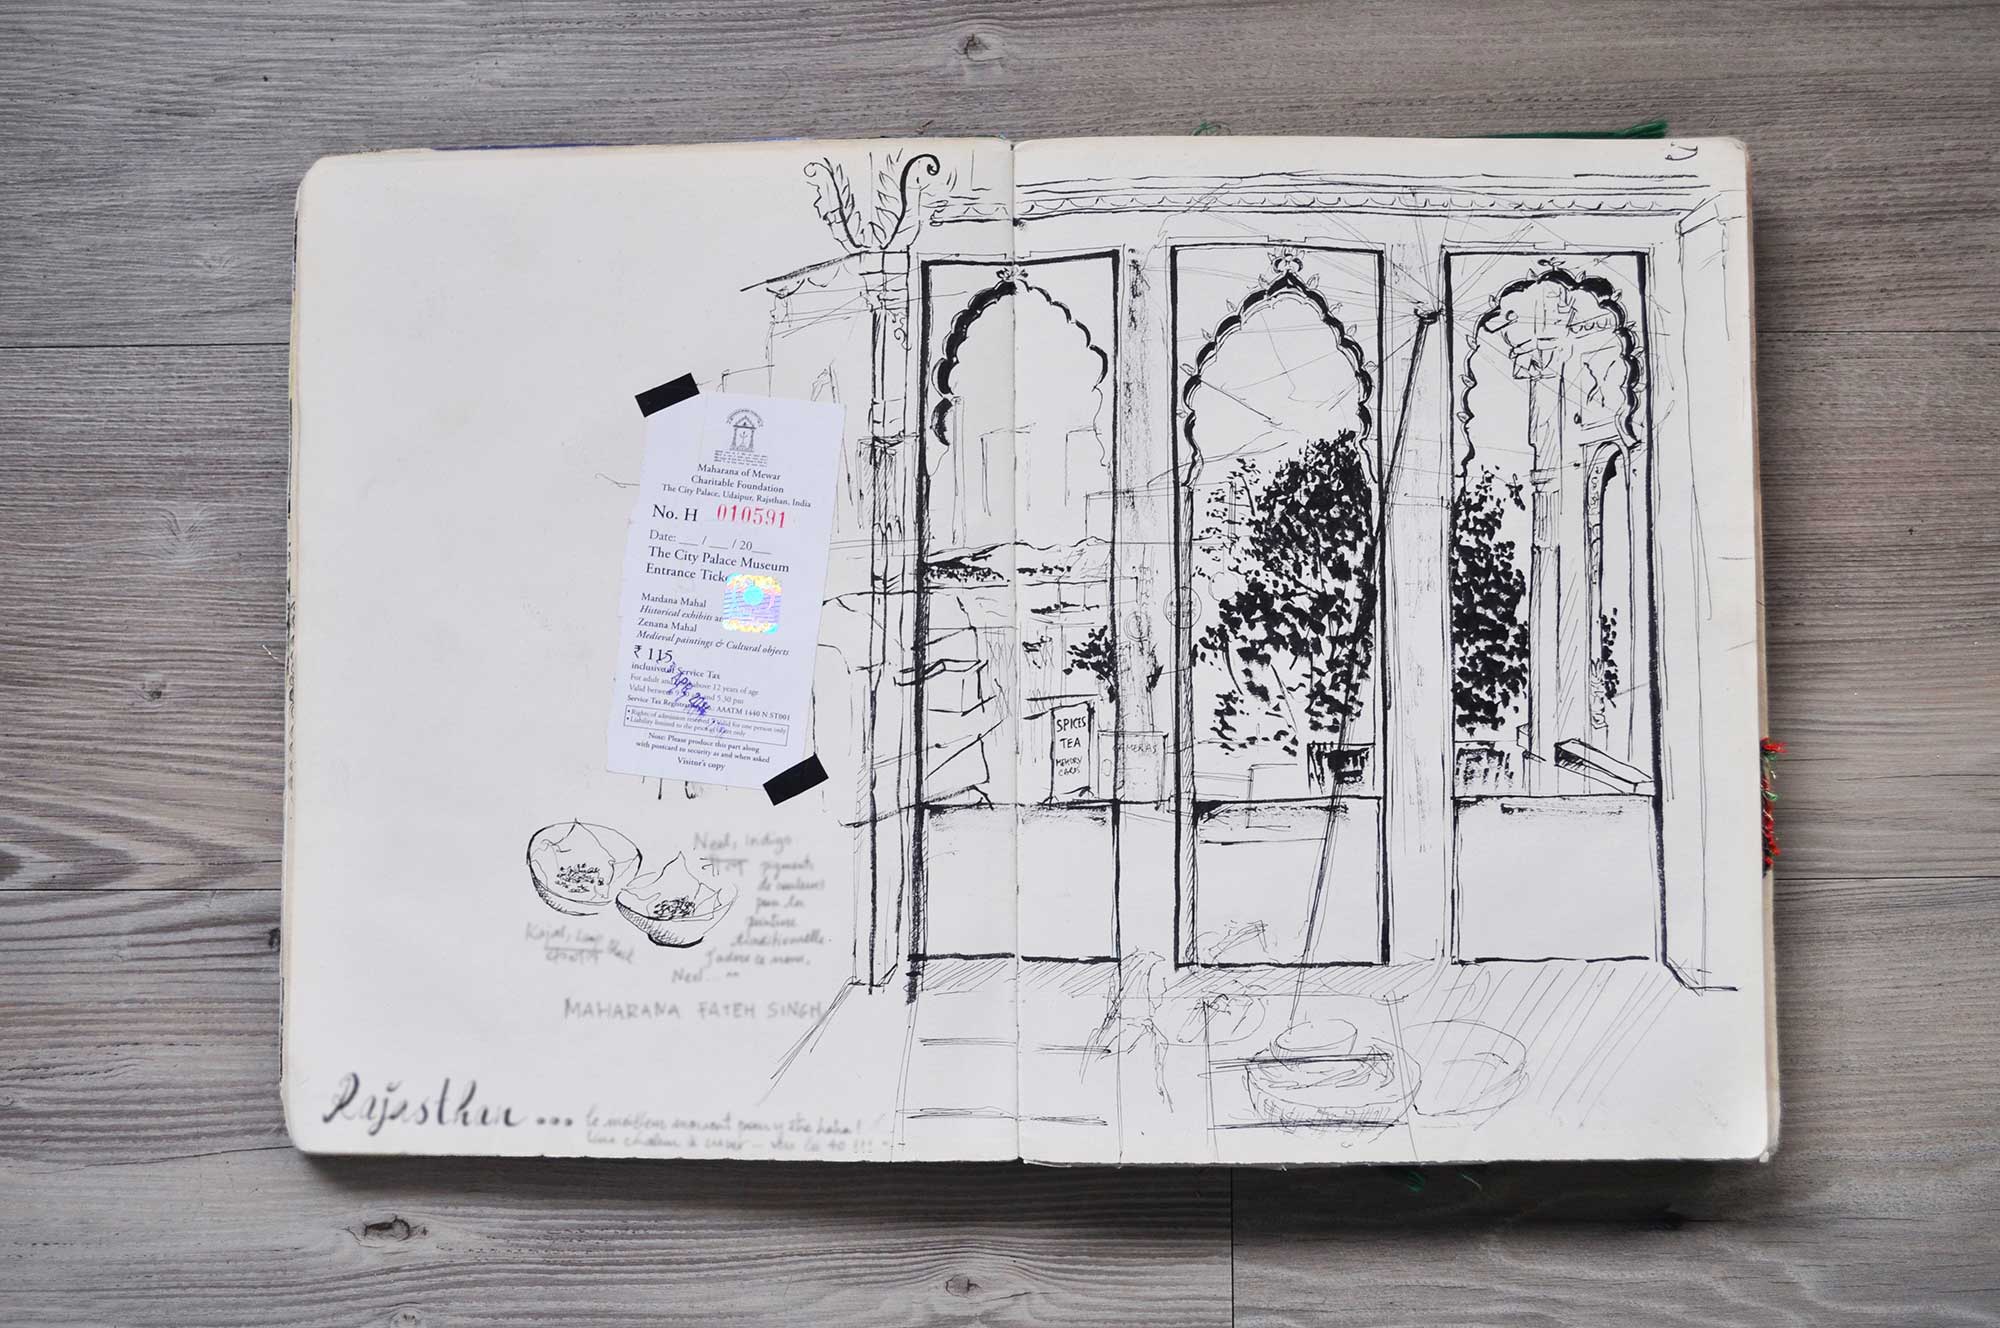 Maharana of Mewar
Charitable Foundation
The City Palace, Udaipur, Rajsthan, India
No. H 010591
Date: __ / __ / 20__
The City Palace Museum
Entrance
Mardana Mahal
Historical exhibits
Zenana Mahal
Medieval paintings & Cultural objects
₹ 115
inclusive of Service Tax
For adult above 12 years of age
Valid between and 5.30 pm
Service Tax AAATM 1440 N ST001
• Rights of admission reserved • Valid for one person only
• Liability limited to the price of only
Note: Please produce this part along
with postcard to security as and when asked
Visitor's copy
SPICES
TEA
MEMORY
CARDS
CAMERAS
Neel, indigo
pigments
de couleurs
pour la
peinture
traditionnelle.
J'adore ce nom,
Neel...
Kajal,
MAHARANA FATEH SINGH
Rajasthan ... le meilleur moment pour y être haha!
Une chaleur à crever - 40 !!!